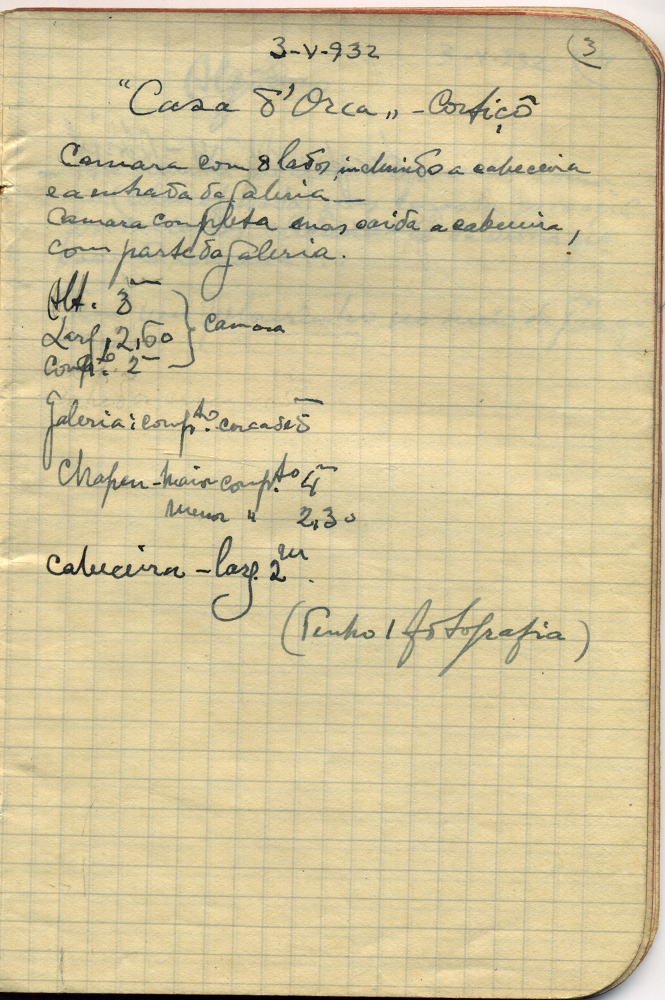 3-V-932
(3
"Casa d'Orca" - Cortiçô
Camara com 8 lados, incluindo a cabeceira
e a entrada da galeria —
Camara completa mas caida a cabeceira,
com parte da galeria.
Alt. 3m
Larg, 2,60 } camara
Compto. 2m
Galeria: compto. cerca de 5m
Chapeu - Maior compto. 4m
menor " 2,30
cabeceira - larg. 2m.
(Tenho 1 fotografia)